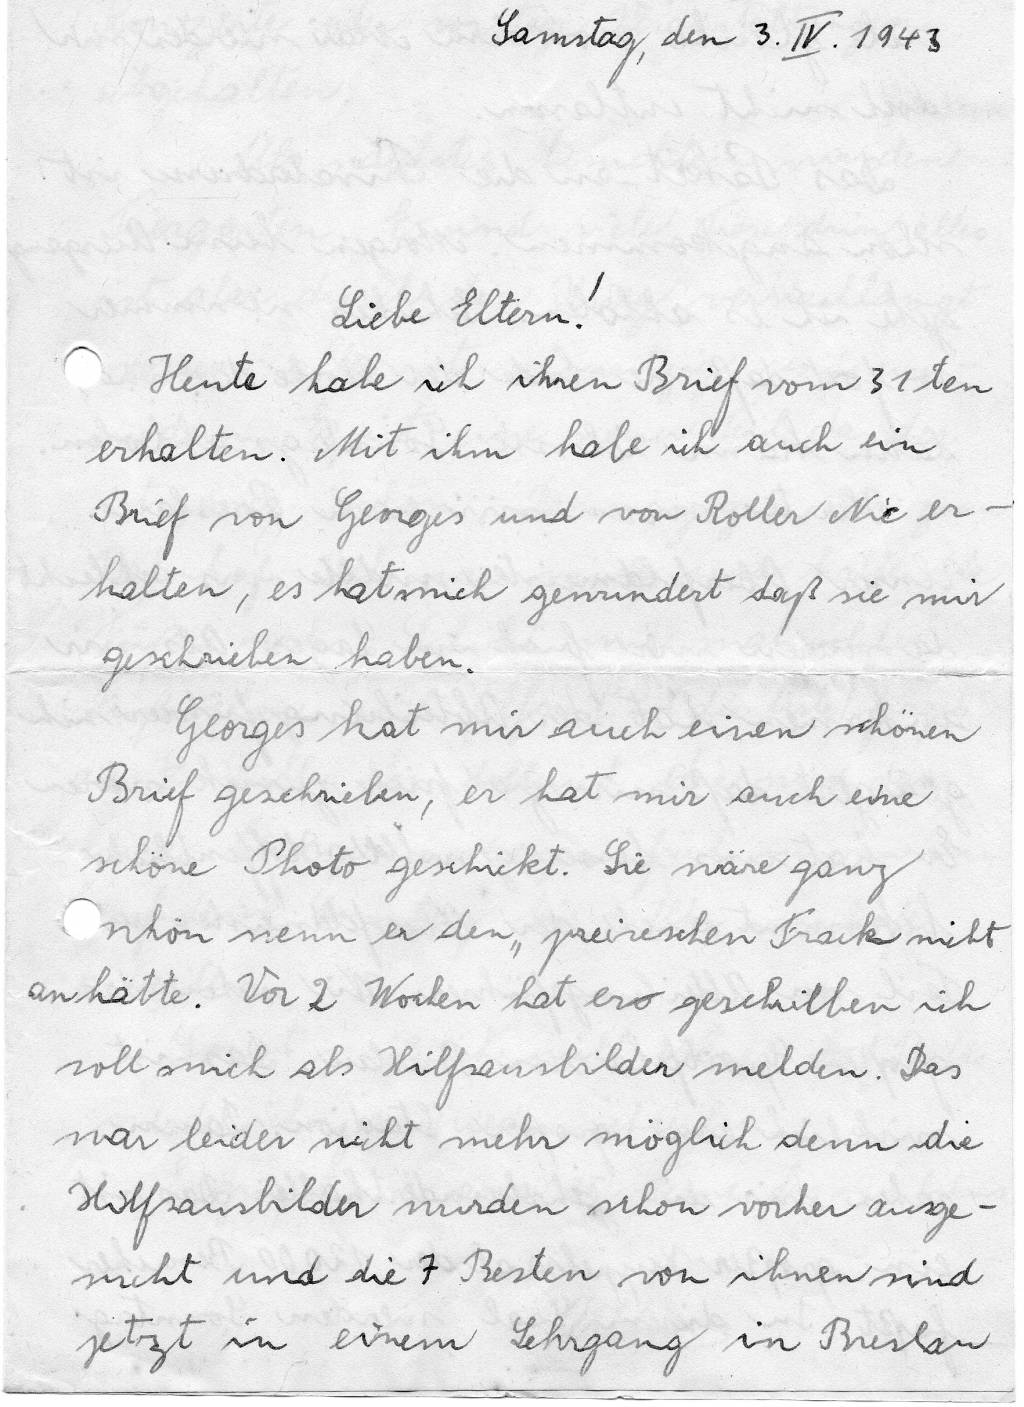 Samstag, den 3. IV. 1943
Liebe Eltern!
Heute habe ich ihren Brief vom 31ten
erhalten. Mit ihm habe ich auch ein
Brief von Georges und von Roller Nic er-
halten, es hat mich gewundert daß sie mir
geschrieben haben.
Georges hat mir auch einen schönen
Brief geschrieben, er hat mir auch eine
schöne Photo geschickt. Sie wäre ganz
schön wenn er den „ preiseschen Frack nicht
an hätte. Vor 2 Wochen hat er geschriben ich
soll mich als Hilfsausbilder melden. Das
war leider nicht mehr möglich denn die
Hilfsausbilder wurden schon vorher ausge-
sucht und die 7 Besten von ihnen sind
jetzt in einem Lehrgang in Breslau